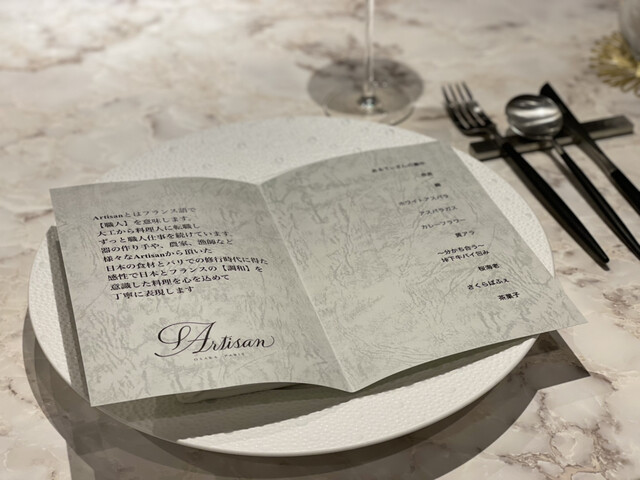 Artisanとはフランス語で
【職人】を意味します。
大工から料理人に転職し
ずっと職人仕事を続けています。
器の作り手や、農家、漁師など
様々なArtisanから頂いた
日本の食材とパリでの修行時代に得た
感性で日本とフランスの【調和】を
意識した料理を心を込めて
丁寧に表現します
L'Artisan
OSAKA PARIS
ホワイトアスパラ
アスパラガス
カレーフラワー
黄アラ
〜分かち合う〜
坂下牛パイ包み
桜海老
さくらぱふぇ
茶菓子